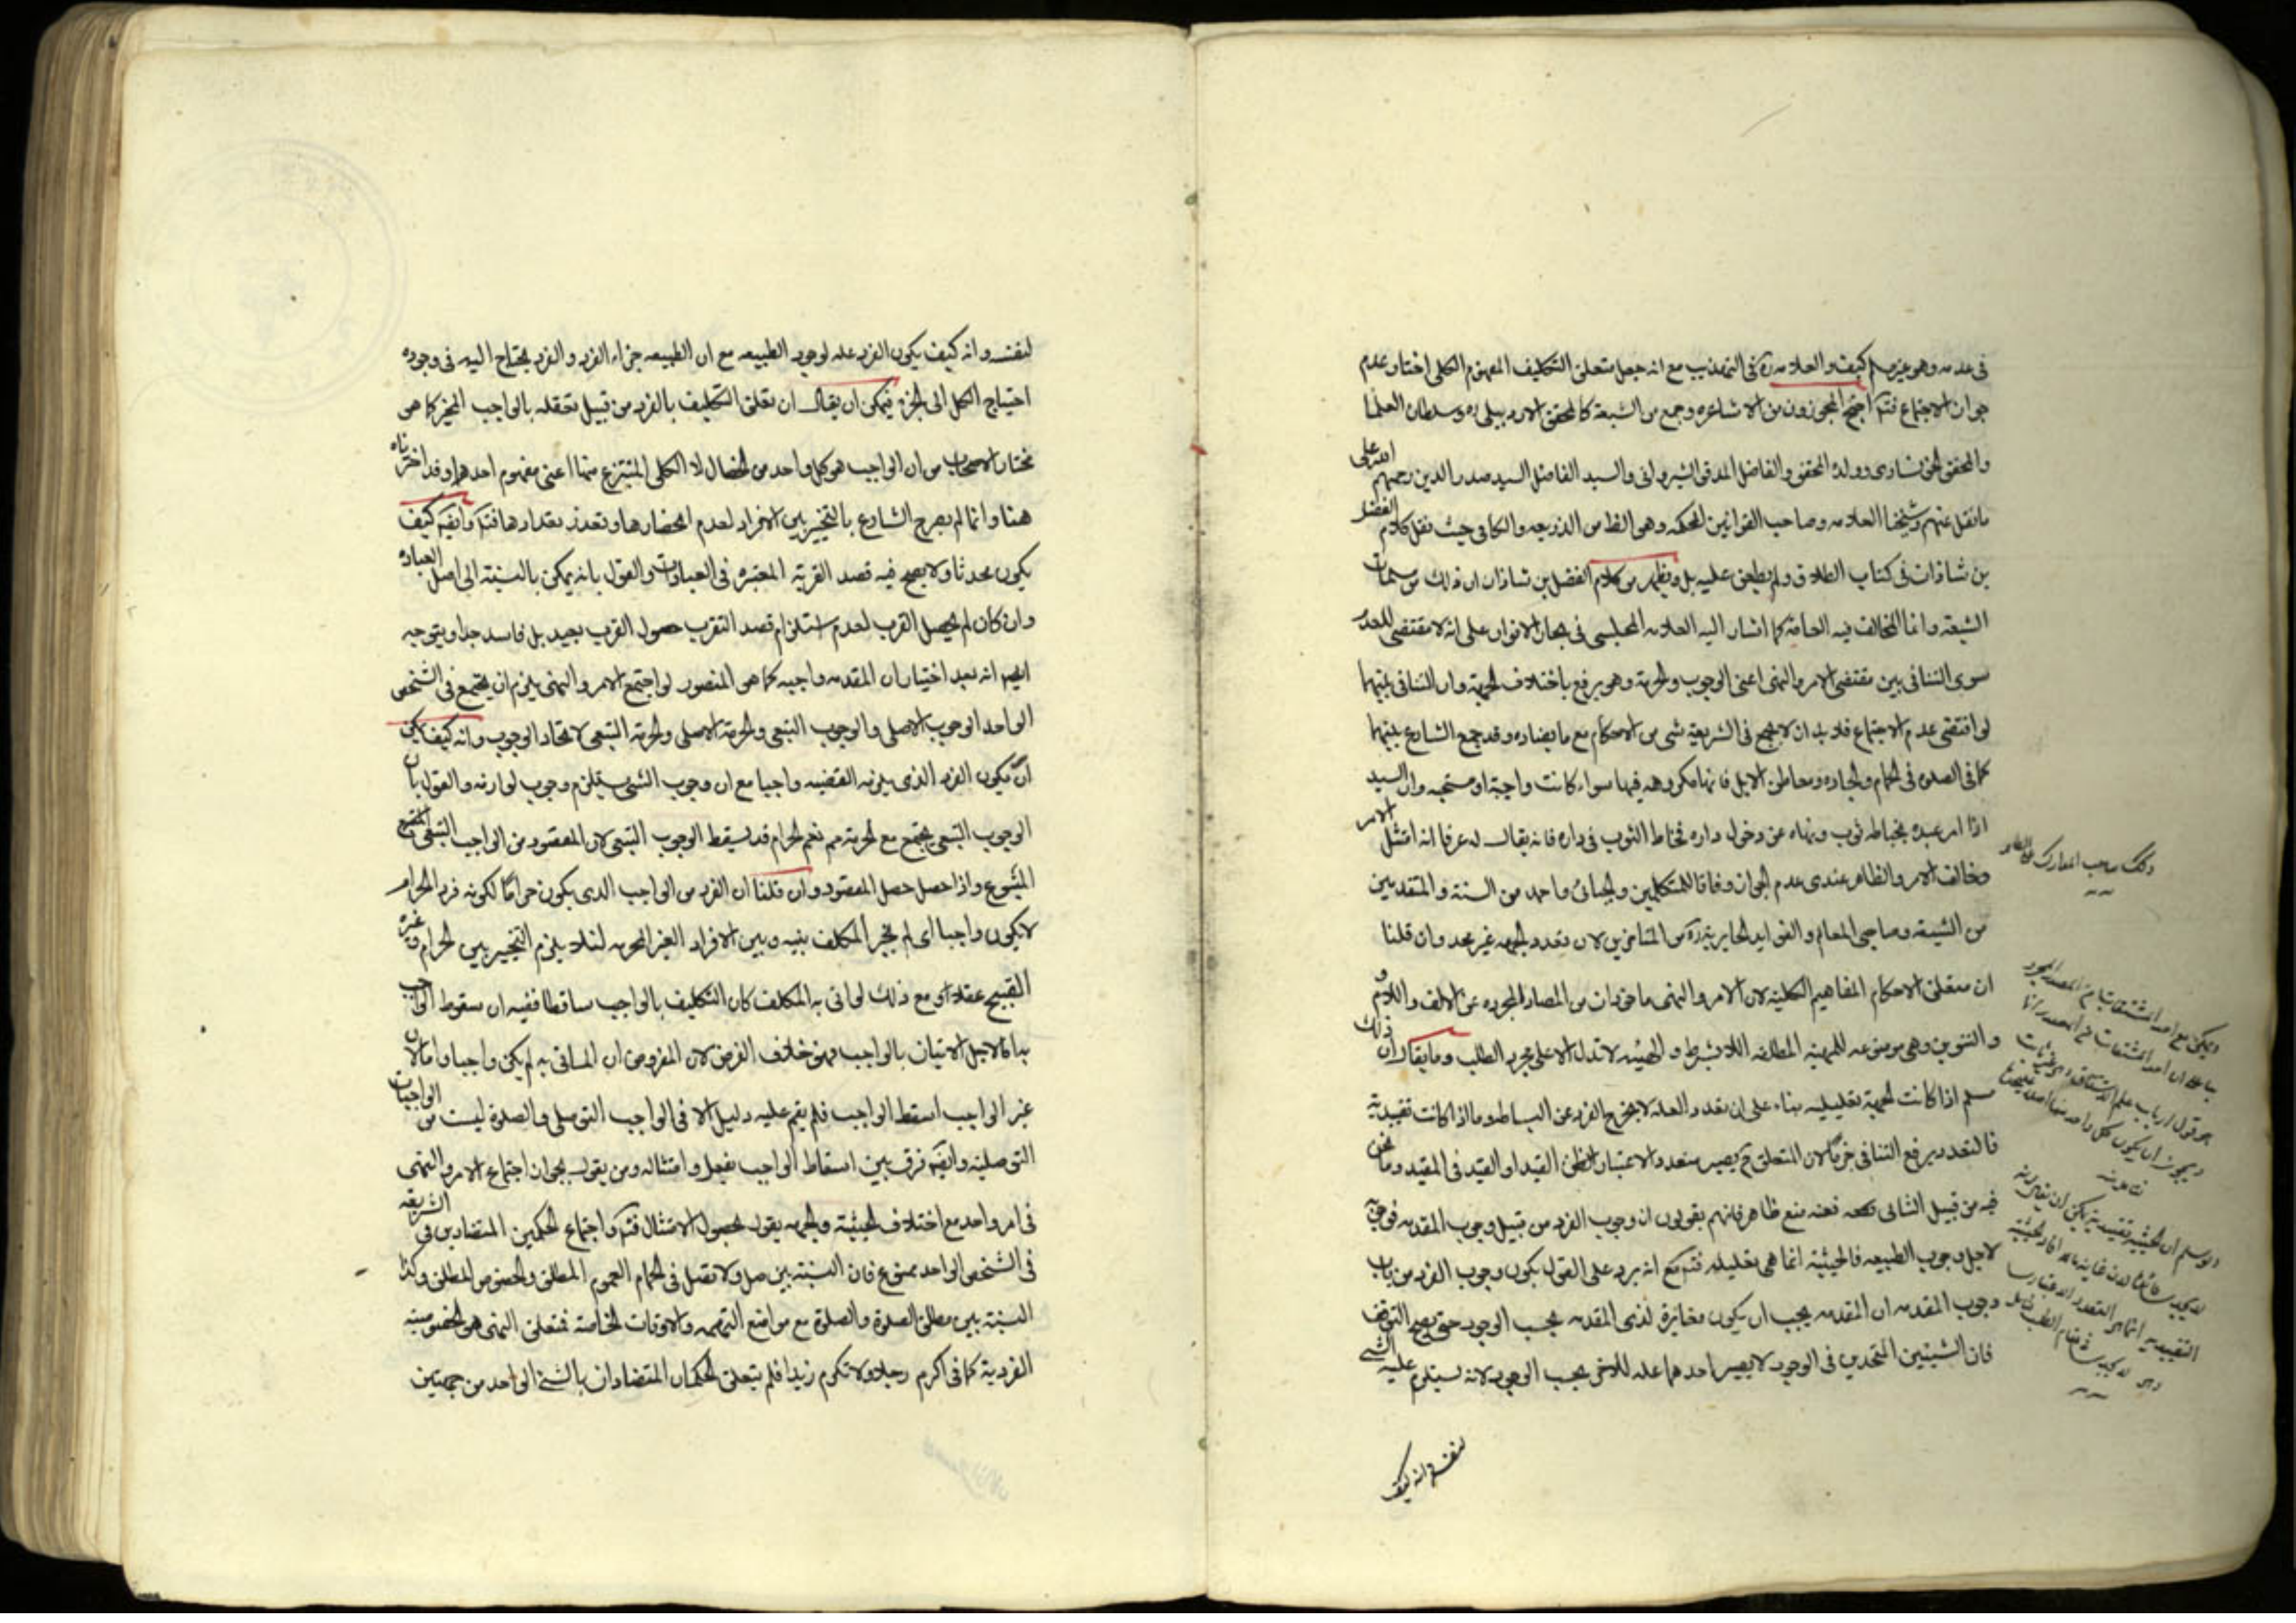 في عدمه وهو غير مسلم كيف والعلامه ره في التهذيب مع انه جعل متعلق التكليف المفهوم الكلي اختار عدم
جواز الاجتماع فتم احتج المجوزون من الاشاعره وجمع من الشيعة كالمحقق الاردبيلي ره وسلطان العلما
والمحقق الخونساري وولده المحقق والفاضل المدقق الشيرواني والسيد الفاضل السيد صدر الدين رحمهم الله على
ما نقل عنهم وشيخنا العلامه وصاحب القوانين المحكمه وهو الظ من الذريعه والكافي حيث نقل كلام الفضل
بن شاذان في كتاب الطلاق ولم يطعن عليه بل ويظهر من كلام الفضل بن شاذان ان ذلك من مسلمات
الشيعة وانما المخالف فيه العامة كما اشار اليه العلامه المجلسي في بحار الانوار على انه لا مقتضى للعدم
سوى التنافي بين مقتضى الامر والنهي اعني الوجوب والحرمة وهو يرفع باختلاف الجهة وان التنافي بينهما
لو اقتضى عدم الاجتماع فلا بد ان لا يجمع في الشريعة شي من الاحكام مع ما يضاده وقد جمع الشارع بينهما
كما في الصلوه في الحمام والجاده ومعاطن الابل فانها مكروهه فيها سواء كانت واجبة او مستحبه وان السيد
اذا امر عبده بخياطه ثوب ونهاه عن دخول داره فخاط الثوب في داره فانه يقال له عرفا انه امتثل الامر
وخالف الامر والظاهر عندي عدم الجواز وفاقا للمتكلمين والجبائي واحمد من السنة والمتقدمين
من الشيعه وصاحبي المعالم والفوايد الحايرية ره من المتاخرين لان تعدد الجهه غير مجد وان قلنا
ان متعلق الاحكام المفاهيم الكلية لان الامر والنهي ماخوذان من المصادر المجرده عن الالف واللام و
والتنوين وهي موضوعه للمهية المطلقه اللا بشرط والهيئه لا تدل الا على مجرد الطلب وما يقال ان ذلك
مسلم اذا كانت الجهة تعليليه بناء على ان تعدد العله لا يخرج الفرد عن البساطه وما اذا كانت تقييدية
فالتعدد يرفع التنافي جزما لان المتعلق ح يصير متعدد الاعتبار المطلق القيد او القيد في المقيد وما نحن
فيه من قبيل الثاني فعنه منع ظاهر فانهم يقولون ان وجوب الفرد من قبيل وجوب المقدمه فوجوبه
لاجل وجوب الطبيعه فالحيثية انما هي تعليليه فتم مع انه يرد على القول بكون وجوب الفرد من باب
وجوب المقدمه ان المقدمه يجب ان يكون مغايرة لذي المقدمه بحسب الوجود حتى يصح التوقف
فان الشيئين المتحدين في الوجود لا يصير احدهما عله للاخر بحسب الوجود لانه يستلزم عليه الشي
لنفسه وانه كيف
ذلك صاحب المدارك
لنفسه وانه كيف يكون الفرد عله لوجود الطبيعه مع ان الطبيعه جزاء الفرد والفرد يحتاج اليه في وجوده
احتياج الكل الى الجزء فيمكن ان يقال ان تعلق التكليف بالفرد من قبيل تعلقه بالواجب المخير كما هو
مختار الاصحاب من ان الواجب هو كل واحد من الخصال لا الكلي المنتزع منها اعني مفهوم احدها وقد اخترناه
هنا وانما لم يصرح الشارع بالتخيير بين الافراد لعدم انحصارها وتعذر تعدادها فتم وايضا كيف
يكون محدثا ولا يصح فيه قصد القربة المعتبره في العبادات والقول بانه يمكن بالنسبة الى اصل العباده
وان كان لم يحصل القرب لعدم استلزام قصد التقرب حصول القرب بعيد بل فاسد جدا ويتوجه
ايضا انه بعد اختيار ان المقدمه واجبه كما هو المنصور لو اجتمع الامر والنهي يلزم ان يجتمع في الشخص
الواحد الوجوب الاصلي والوجوب التبعي والحرمة الاصلي والحرمة التبعي لاتحاد الوجوب وانه كيف يمكن
ان يكون الفرد الذي يلزمه القضيه واجبا مع ان وجوب الشي يستلزم وجوب لوازمه والقول بان
الوجوب التبعي يجتمع مع الحرمة نعم الحرام قد يسقط الوجوب التبعي لان المقصود من الواجب التبعي
المشروع واذا حصل حصل المقصود وان قلنا ان الفرد من الواجب الذي يكون حراما لكونه فرد الحرام
لا يكون واجبا اي لم يخير المكلف بينه وبين الافراد الغير المحرمه لئلا يلزم التخيير بين الحرام وغيره
القبيح عقلا ومع ذلك لو اتى به المكلف كان التكليف بالواجب ساقطا ففيه ان سقوط الواجب
به انما لاجل الاتيان بالواجب فهو خلاف الفرض لان المفروض ان الماتي به لم يكن واجبا واما لان
غير الواجب اسقط الواجب فلم يقم عليه دليل الا في الواجب التوصلي والصلوة ليست من الواجبات
التوصلية وايضا فرق بين اسقاط الواجب بفعل وامتثاله ومن يقول بجواز اجتماع الامر والنهي
في امر واحد مع اختلاف الحيثية والجهه يقول بحصول الامتثال فتم واجتماع الحكمين المتضادين في الشريعه
في الشخص الواحد ممنوع فان النسبة بين صل ولا تصل في الحمام العموم المطلق والخصوص المطلق وكذا
النسبة بين مطلق الصلوة والصلوة مع مواضع التهمه والاوقات الخاصة فمتعلق النهي هو الخصوصية
الفردية كما في اكرم رجلا ولا تكرم زيدا فلم يتعلق الحكمان المتضادان بالشي الواحد من جهتين